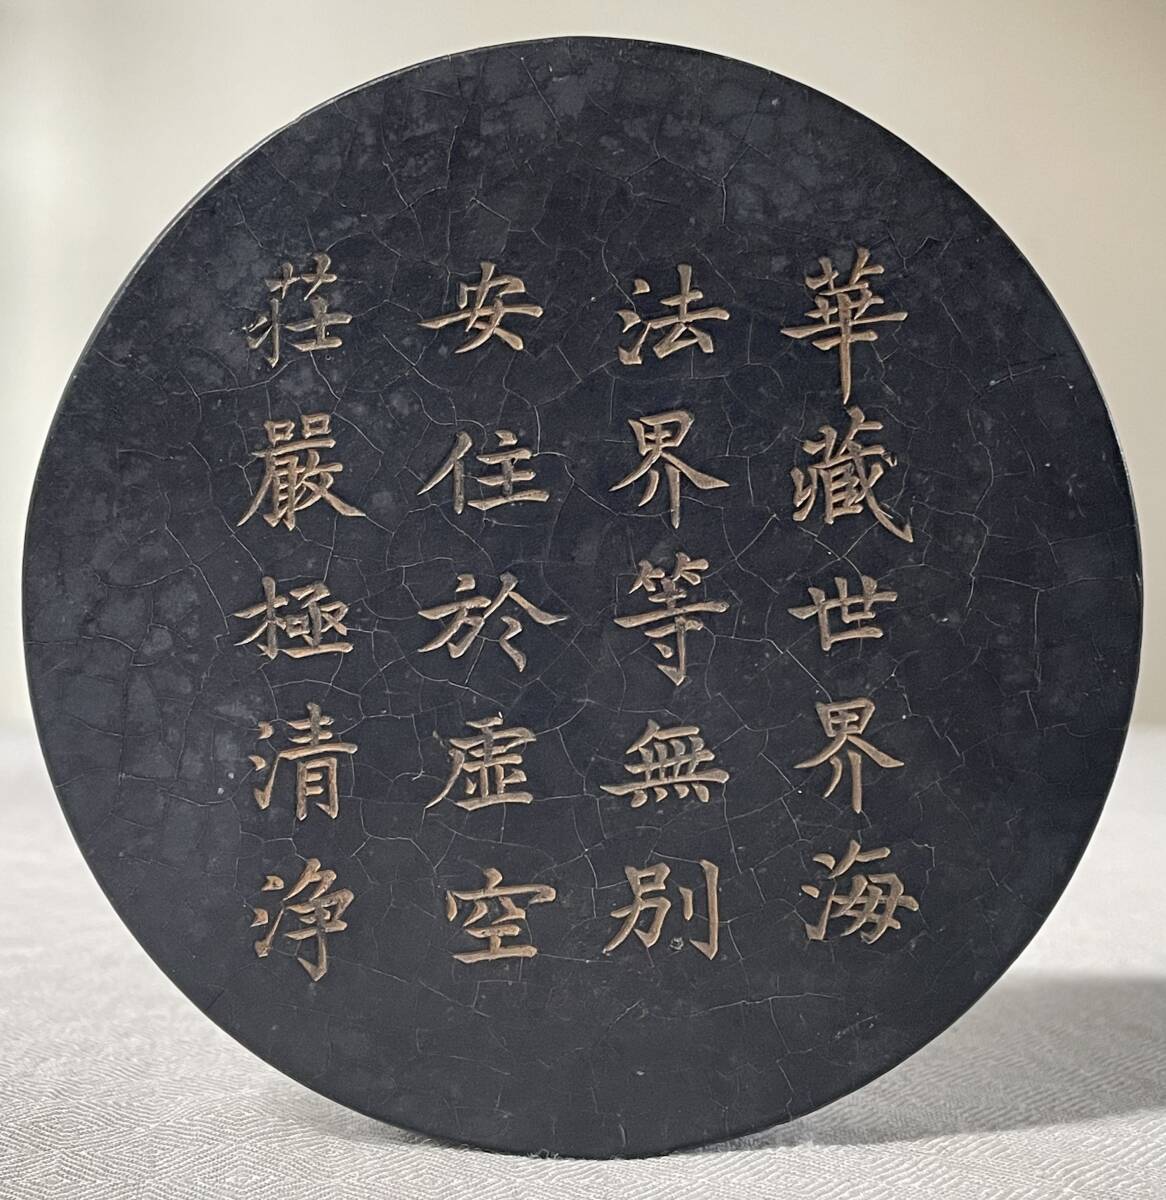 華藏世界海
法界等無別
安住於虛空
莊嚴極清淨